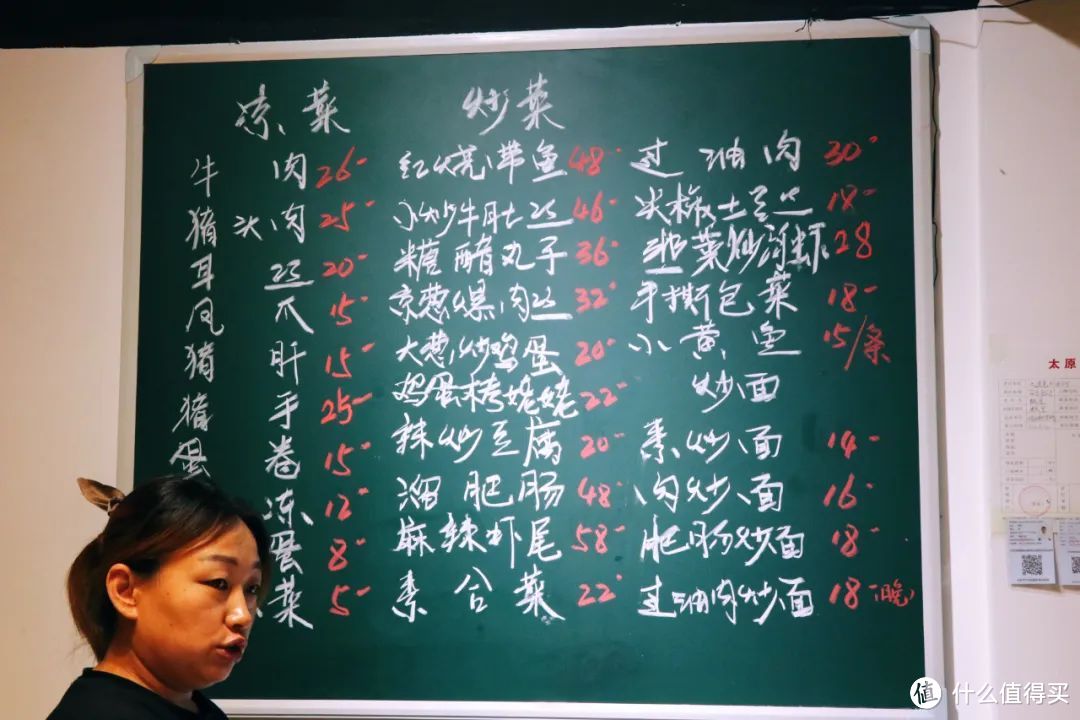 凉菜 炒菜
牛肉 26- 红烧带鱼 48- 过油肉 30-
猪头肉 25- 小炒牛肚丝 46- 尖椒土豆丝 18-
耳丝 20- 糖醋丸子 36- 韭菜炒河虾 28
凤爪 15- 京葱爆肉丝 32- 手撕包菜 18-
猪肝 15- 大葱炒鸡蛋 20- 小黄鱼 15/条
猪手 25- 鸡蛋烤姥姥 22- 炒面
蛋卷 15- 辣炒豆腐 20- 素炒面 14-
冻 12- 溜肥肠 48- 肉炒面 16-
蛋 8- 麻辣虾尾 58- 肥肠炒面 18-
菜 5- 素合菜 22- 过油肉炒面 18-(晚)
太原
值 什么值得买